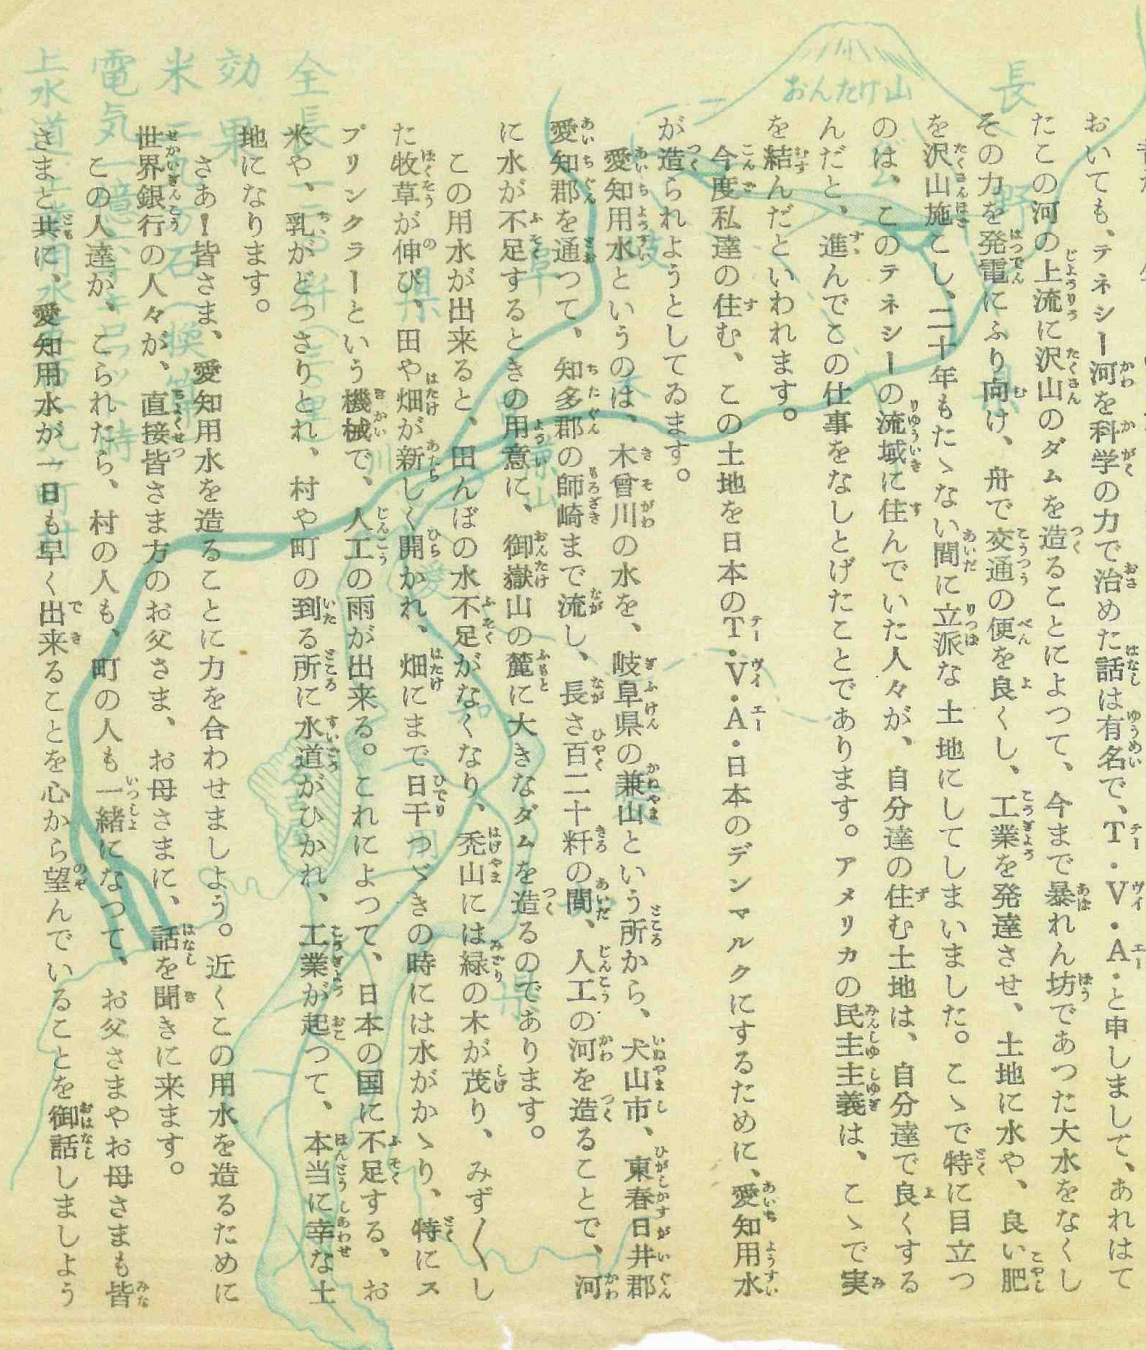 おいても、テネシー河を科学の力で治めた話は有名で、T・V・A・と申しまして、あれはて
たこの河の上流に沢山のダムを造ることによつて、今まで暴れん坊であつた大水をなくし
その力を発電にふり向け、舟で交通の便を良くし、工業を発達させ、土地に水や、良い肥
を沢山施こし、二十年もたゝない間に立派な土地にしてしまいました。こゝで特に目立つ
のは、このテネシーの流域に住んでいた人々が、自分達の住む土地は、自分達で良くする
んだと、進んでこの仕事をなしとげたことであります。アメリカの民主主義は、こゝで実
を結んだといわれます。
今度私達の住む、この土地を日本のT・V・A・日本のデンマルクにするために、愛知用水
が造られようとしてゐます。
愛知用水というのは、木曾川の水を、岐阜県の兼山という所から、犬山市、東春日井郡
愛知郡を通つて、知多郡の師崎まで流し、長さ百二十粁の間、人工の河を造ることで、河
に水が不足するときの用意に、御嶽山の麓に大きなダムを造るのであります。
この用水が出来ると、田んぼの水不足がなくなり、禿山には緑の木が茂り、みず〳〵し
た牧草が伸び、田や畑が新しく開かれ、畑にまで日干つゞきの時には水がかゝり、特にス
プリンクラーという機械で、人工の雨が出来る。これによつて、日本の国に不足する、お
米や、乳がどつさりとれ、村や町の到る所に水道がひかれ、工業が起つて、本当に幸な土
地になります。
さあ!皆さま、愛知用水を造ることに力を合わせましよう。近くこの用水を造るために
世界銀行の人々が、直接皆さま方のお父さま、お母さまに、話を聞きに来ます。
この人達が、こられたら、村の人も、町の人も一緒になつて、お父さまやお母さまも皆
さまと共に、愛知用水が一日も早く出来ることを心から望んでいることを御話しましよう
おんたけ山
長野県
岐阜県
愛知県
全長
効果
米
電気一億
上水道